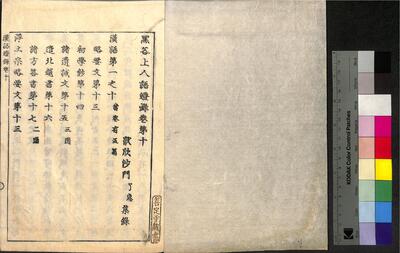 黒谷上人語燈録巻第十
厭欣沙門 了惠 集録
漢語第一之十 當巻有五篇
略要文第十三
初學鈔第十四
諸遺誡文第十五 三通
遣北越書第十六
諸方答書第十七 二通
浄土宗略要文第十三
漢語燈録巻十
KODAK Color Control Patches